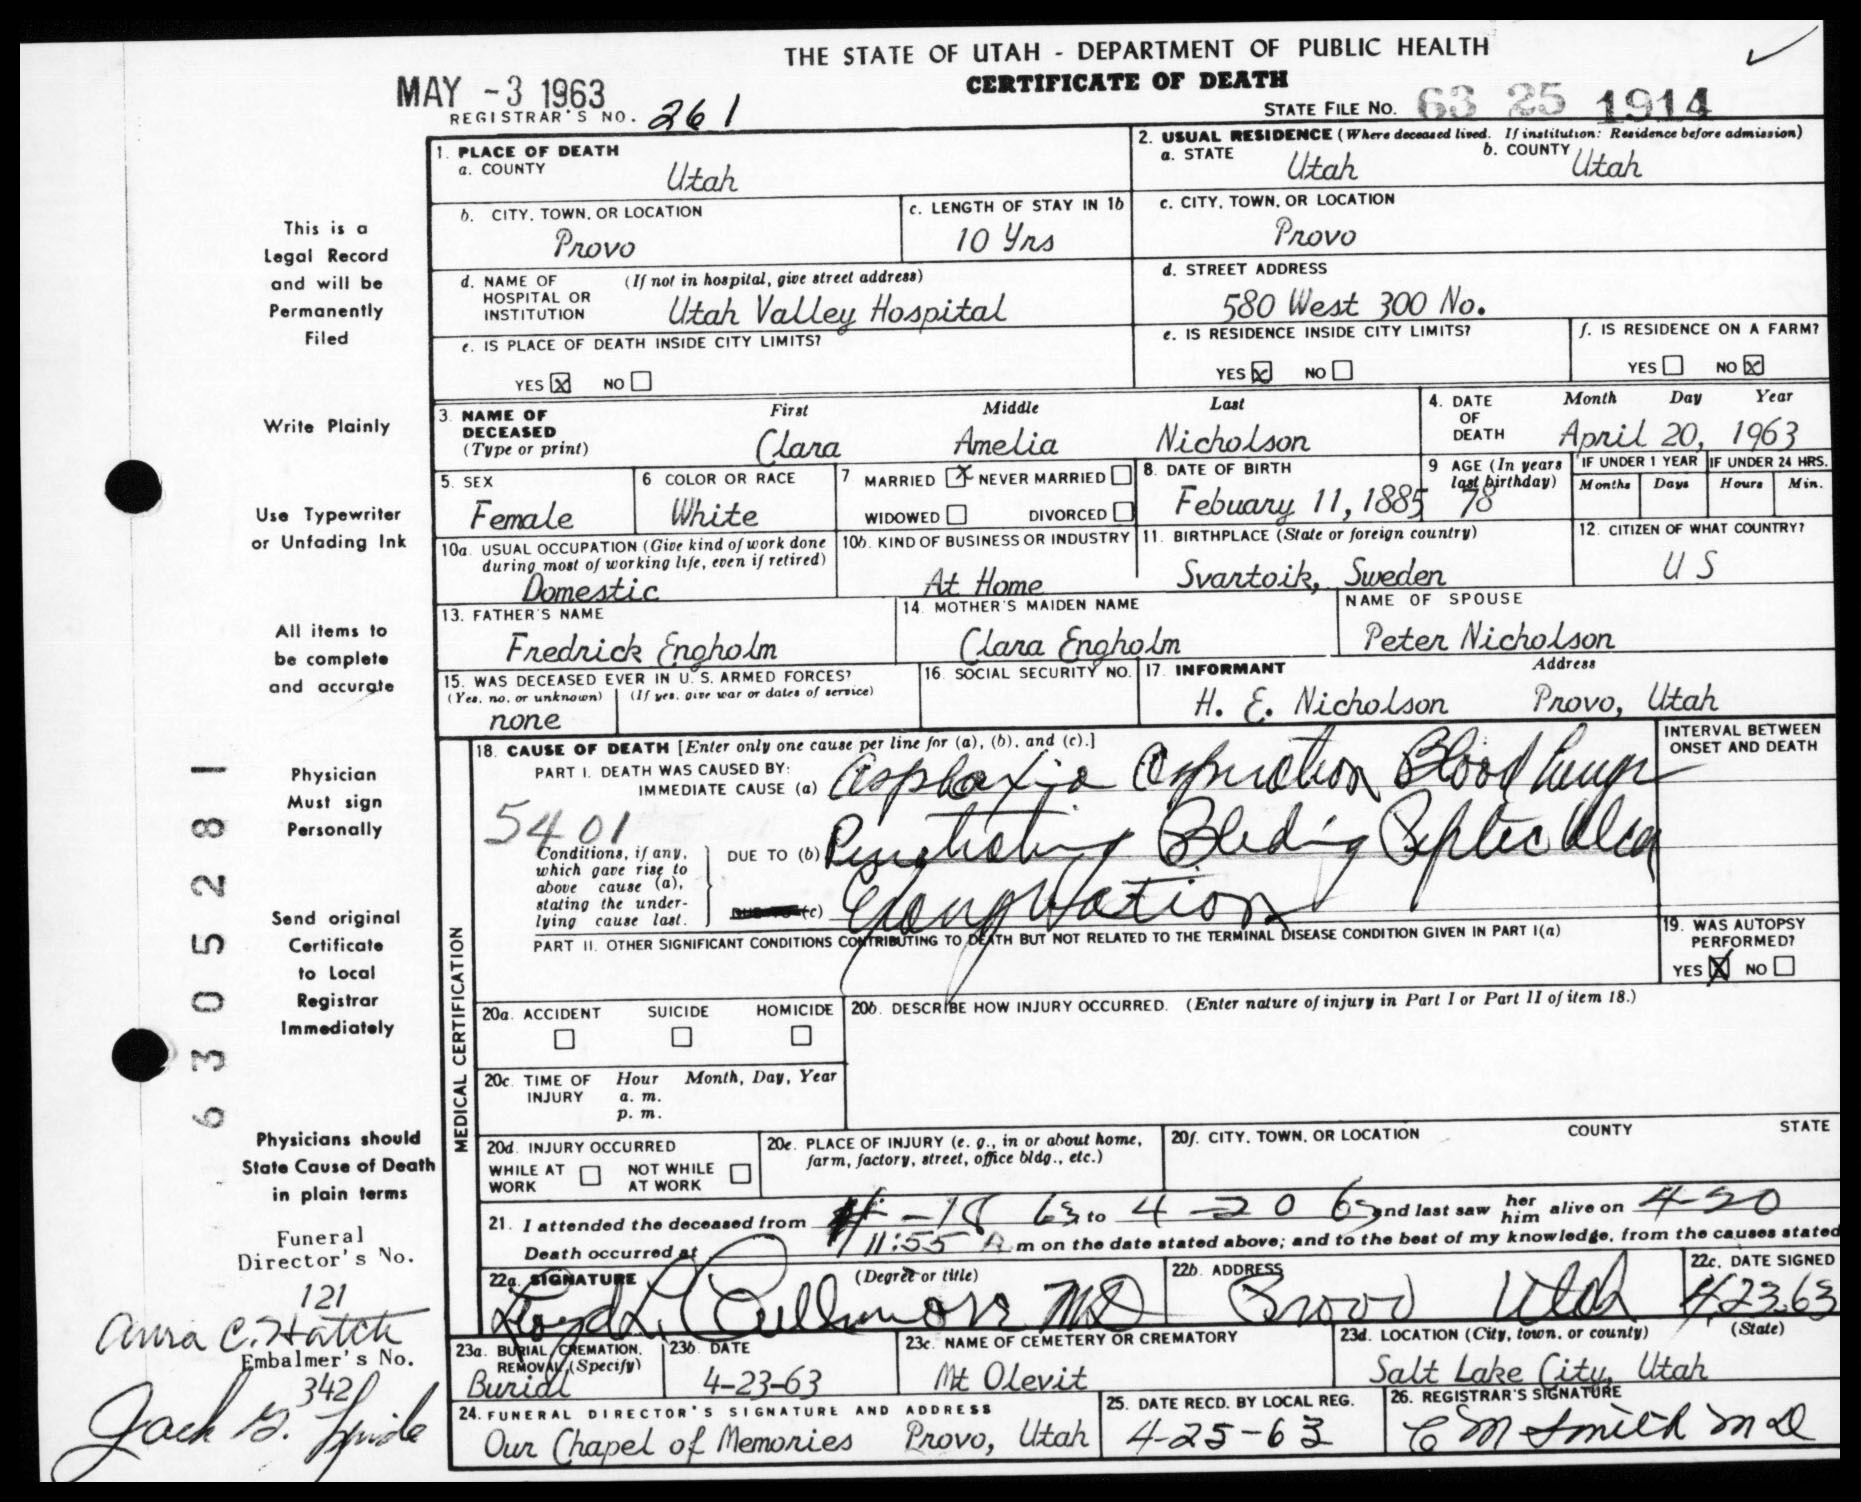 THE STATE OF UTAH - DEPARTMENT OF PUBLIC HEALTH
CERTIFICATE OF DEATH
MAY -3 1963
REGISTRAR'S NO. 261
STATE FILE NO. 63 25 1914
1. PLACE OF DEATH
a. COUNTY Utah
2. USUAL RESIDENCE (Where deceased lived. If institution: Residence before admission)
a. STATE Utah b. COUNTY Utah
b. CITY, TOWN, OR LOCATION Provo
c. LENGTH OF STAY IN 1b 10 Yrs
c. CITY, TOWN, OR LOCATION Provo
d. NAME OF HOSPITAL OR INSTITUTION (If not in hospital, give street address) Utah Valley Hospital
d. STREET ADDRESS 580 West 300 No.
e. IS PLACE OF DEATH INSIDE CITY LIMITS?
YES X NO
e. IS RESIDENCE INSIDE CITY LIMITS?
YES X NO
f. IS RESIDENCE ON A FARM?
YES NO X
3. NAME OF DECEASED (Type or print)
First Middle Last
Clara Amelia Nicholson
4. DATE OF DEATH Month Day Year
April 20, 1963
5. SEX Female
6 COLOR OR RACE White
7 MARRIED X NEVER MARRIED
WIDOWED DIVORCED
8. DATE OF BIRTH Febuary 11, 1885
9 AGE (In years last birthday) 78
IF UNDER 1 YEAR Months Days
IF UNDER 24 HRS. Hours Min.
10a. USUAL OCCUPATION (Give kind of work done during most of working life, even if retired) Domestic
10b. KIND OF BUSINESS OR INDUSTRY At Home
11. BIRTHPLACE (State or foreign country) Svartoik, Sweden
12. CITIZEN OF WHAT COUNTRY? U S
13. FATHER'S NAME Fredrick Engholm
14. MOTHER'S MAIDEN NAME Clara Engholm
NAME OF SPOUSE Peter Nicholson
15. WAS DECEASED EVER IN U. S. ARMED FORCES?
(Yes, no, or unknown) (If yes, give war or dates of service)
none
16. SOCIAL SECURITY NO.
17. INFORMANT Address
H. E. Nicholson Provo, Utah
MEDICAL CERTIFICATION
18. CAUSE OF DEATH [Enter only one cause per line for (a), (b), and (c).]
PART I. DEATH WAS CAUSED BY:
IMMEDIATE CAUSE (a) Asphaxia Aspiration Blood Lungs
INTERVAL BETWEEN ONSET AND DEATH
5401
Conditions, if any, which gave rise to above cause (a), stating the underlying cause last.
DUE TO (b) Penetrating Bleeding Peptic Ulcer
DUE TO (c)
PART II. OTHER SIGNIFICANT CONDITIONS CONTRIBUTING TO DEATH BUT NOT RELATED TO THE TERMINAL DISEASE CONDITION GIVEN IN PART I(a)
19. WAS AUTOPSY PERFORMED?
YES X NO
20a. ACCIDENT SUICIDE HOMICIDE
20b. DESCRIBE HOW INJURY OCCURRED. (Enter nature of injury in Part I or Part II of item 18.)
20c. TIME OF INJURY Hour Month, Day, Year
a. m.
p. m.
20d. INJURY OCCURRED
WHILE AT WORK NOT WHILE AT WORK
20e. PLACE OF INJURY (e. g., in or about home, farm, factory, street, office bldg., etc.)
20f. CITY, TOWN, OR LOCATION COUNTY STATE
21. I attended the deceased from 4-18 63 to 4-20 63 and last saw her him alive on 4-20
Death occurred at 11:55 A m on the date stated above; and to the best of my knowledge, from the causes stated
22a. SIGNATURE (Degree or title)
Lloyd L. Cullimore MD
22b. ADDRESS Provo Utah
22c. DATE SIGNED 4/23.63
23a. BURIAL, CREMATION, REMOVAL (Specify) Burial
23b. DATE 4-23-63
23c. NAME OF CEMETERY OR CREMATORY Mt Olevit
23d. LOCATION (City, town, or county) (State)
Salt Lake City, Utah
24. FUNERAL DIRECTOR'S SIGNATURE AND ADDRESS
Our Chapel of Memories Provo, Utah
25. DATE RECD. BY LOCAL REG. 4-25-63
26. REGISTRAR'S SIGNATURE
C M Smith M D
This is a
Legal Record
and will be
Permanently
Filed
Write Plainly
Use Typewriter
or Unfading Ink
All items to
be complete
and accurate
Physician
Must sign
Personally
Send original
Certificate
to Local
Registrar
Immediately
Physicians should
State Cause of Death
in plain terms
Funeral
Director's No.
121
Anna C. Hatch
Embalmer's No.
342
Jack G.
63 05281